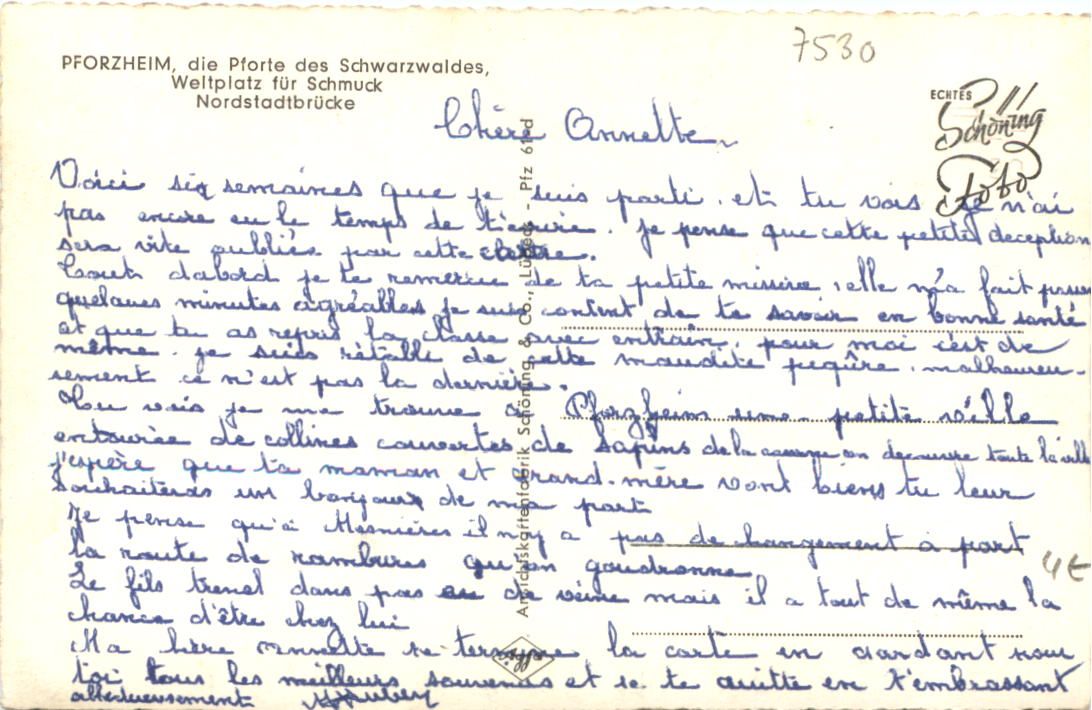 7530
PFORZHEIM, die Pforte des Schwarzwaldes,
Weltplatz für Schmuck
Nordstadtbrücke
ECHTES
Schöning
Foto
Chère Annette
Voici six semaines que je suis parti. et tu vois je n'ai
pas encore eu le temps de t'écrire. je pense que cette petite deception
sera vite oubliée par cette
tout dabord je te remercie de ta petite missive, elle m'a fait passer
quelques minutes agréables je suis content de te savoir en bonne santé
et que tu as repris la classe avec entrain. pour moi c'est de
même. je suis rétabli de cette maudite piqûre. malheureu-
sement ce n'est pas la dernière.
Tu vois je me trouve à Pforzheim une petite ville
entourée de collines couvertes de sapins de la caserne on decouvre toute la ville
j'espère que ta maman et Grand-mère vont biens tu leur
souhaiteras un bonjour de ma part
Je pense qu'à Mesnières il n'y a pas de changement à part
la route de rambures qu'on goudronne
Le fils dans pas de veine mais il a tout de même la
chance d'être chez lui
Ma chère Annette je termine la carte en gardant pour
toi tous les meilleurs souvenirs et je te quitte en t'embrassant
affectueusement
4€
Ansichtskartenfabrik Schöning & Co., Lübeck - Pfz 61 d
Agfa